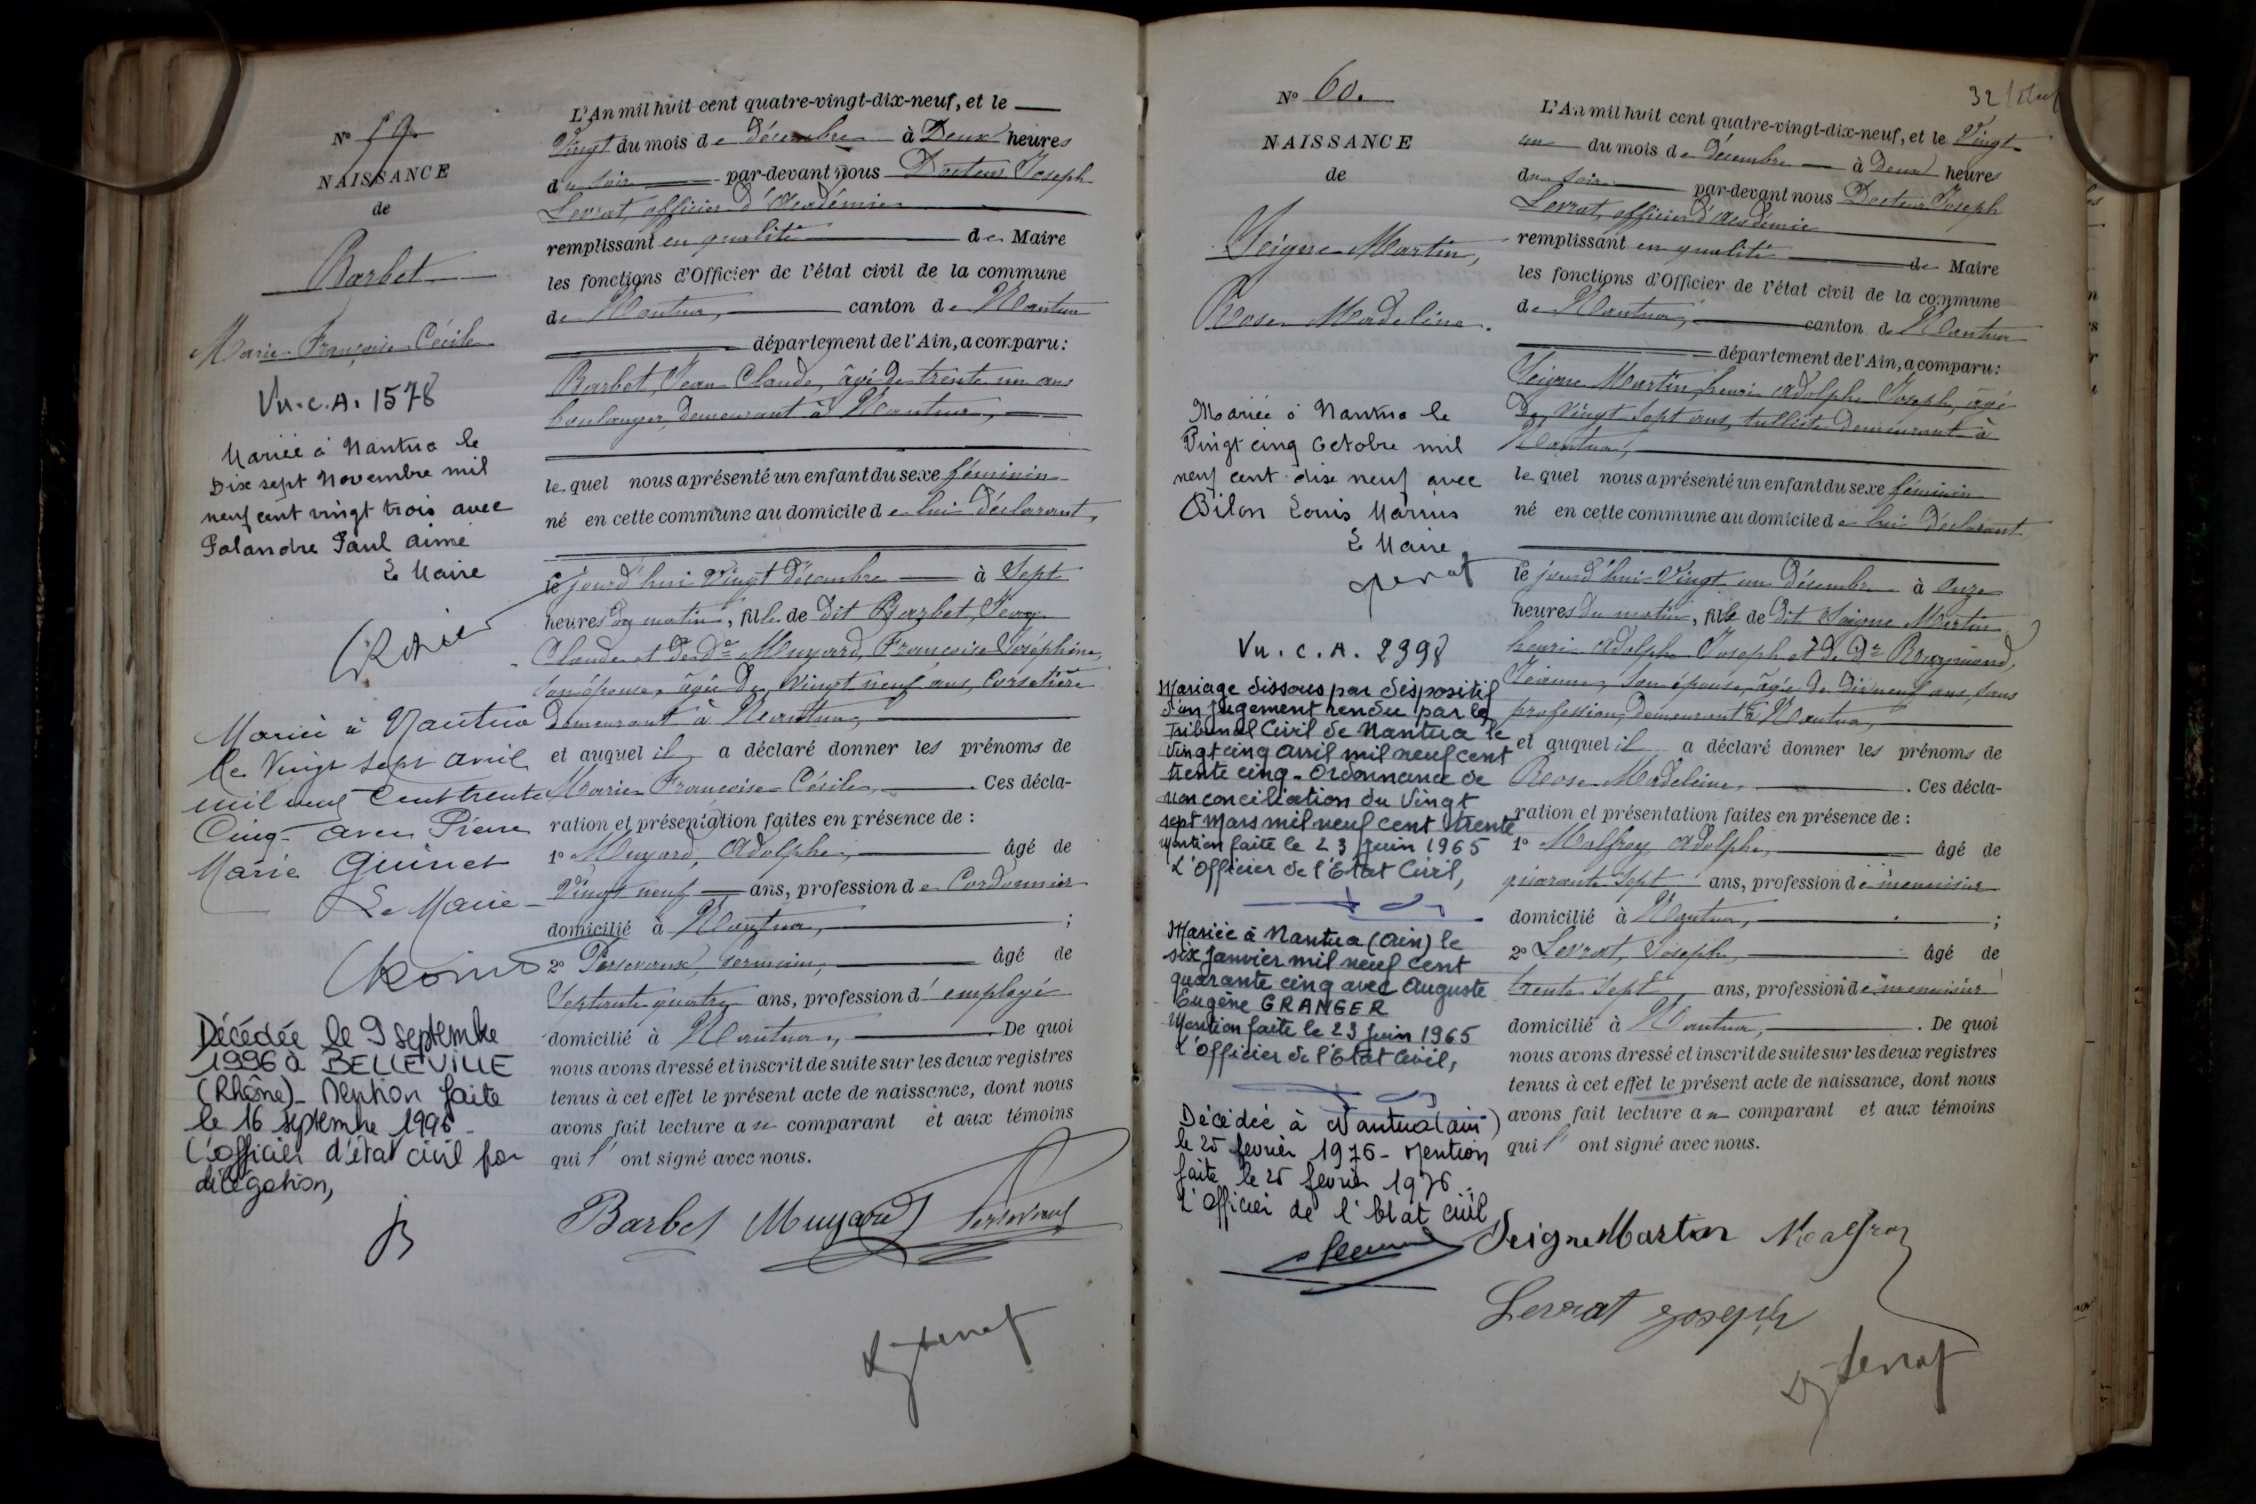 N° 59.
NAISSANCE
de
Barbet
Marie Françoise Cécile
Vu. C. A. 1578
Mariée à Nantua le
Dix sept Novembre mil
neuf cent vingt trois avec
Palandre Paul Aimé
Le Maire
Mariée à Nantua
le Vingt sept avril
mil neuf cent trente
Cinq avec Pierre
Marie Guinet
Le Maire
Décédée le 9 septembre
1996 à BELLEVILLE
(Rhône)_ Mention faite
le 16 septembre 1996_
L'officier d'état civil par
délégation,
L'An mil huit cent quatre-vingt-dix-neuf, et le
Vingt du mois de décembre à Deux heures
du soir par-devant nous Docteur Joseph
Levrat, officier d'Académie
remplissant en qualité de Maire
les fonctions d'Officier de l'état civil de la commune
de Nantua, canton de Nantua
département de l'Ain, a comparu :
Barbet, Jean Claude, âgé de trente un ans
boulanger, demeurant à Nantua,
lequel nous a présenté un enfant du sexe féminin
né en cette commune au domicile de lui déclarant,
ce jourd'hui Vingt Décembre à Sept
heures du matin, fille de dit Barbet, Jean
Claude et de De Muyard, Françoise Joséphine,
son épouse, âgée de Vingt neuf ans, Corsetière
demeurant à Nantua,
et auquel il a déclaré donner les prénoms de
Marie Françoise Cécile, . Ces décla-
ration et présentation faites en présence de :
1° Muyard, Adolphe, âgé de
Vingt neuf ans, profession de Cordonnier
domicilié à Nantua, ;
2° Persevaux, Germain, âgé de
Septante quatre ans, profession d' employé
domicilié à Nantua, . De quoi
nous avons dressé et inscrit de suite sur les deux registres
tenus à cet effet le présent acte de naissance, dont nous
avons fait lecture au comparant et aux témoins
qui l' ont signé avec nous.
Barbet Muyard
Dr Levrat
32
N° 60.
NAISSANCE
de
Seigne Martin,
Rose Madeleine.
Mariée à Nantua le
Vingt cinq Octobre mil
neuf cent dix neuf avec
Bilon Louis Marius
Le Maire
Vu. C. A. 2398
Mariage dissous par dispositif
d'un jugement rendu par le
Tribunal Civil de Nantua le
Vingt cinq avril mil neuf cent
trente cinq. Ordonnance de
non conciliation du Vingt
sept Mars mil neuf cent trente
Mention faite le 23 Juin 1965
L'Officier de l'Etat Civil,
Mariée à Nantua (Ain) le
six Janvier mil neuf cent
quarante cinq avec Auguste
Eugène GRANGER
Mention faite le 23 Juin 1965
L'Officier de l'Etat Civil,
Décédée à Nantua (ain)
le 25 février 1976 - Mention
faite le 25 février 1976.
L'Officier de l'Etat civil
L'An mil huit cent quatre-vingt-dix-neuf, et le Vingt
un du mois de décembre à Deux heures
du soir par-devant nous Docteur Joseph
Levrat, officier d'Académie
remplissant en qualité de Maire
les fonctions d'Officier de l'état civil de la commune
de Nantua, canton de Nantua
département de l'Ain, a comparu :
Seigne Martin, henri Adolphe Joseph, âgé
de Vingt sept ans, tulliste demeurant à
Nantua,
lequel nous a présenté un enfant du sexe féminin
né en cette commune au domicile de lui déclarant
ce jourd'hui Vingt un Décembre à Onze
heures du matin, fille de dit Seigne Martin
henri Adolphe Joseph et de De Raymond,
Jeanne, son épouse, âgée de dix neuf ans, sans
profession, demeurant à Nantua,
et auquel il a déclaré donner les prénoms de
Rose Madeleine, . Ces décla-
ration et présentation faites en présence de :
1° Malfroy Adolphe, âgé de
quarante sept ans, profession de menuisier
domicilié à Nantua, ;
2° Levrat, Joseph, âgé de
trente sept ans, profession de menuisier
domicilié à Nantua, . De quoi
nous avons dressé et inscrit de suite sur les deux registres
tenus à cet effet le présent acte de naissance, dont nous
avons fait lecture au comparant et aux témoins
qui l' ont signé avec nous.
Seigne Martin Malfroy
Levrat Joseph
Dr Levrat